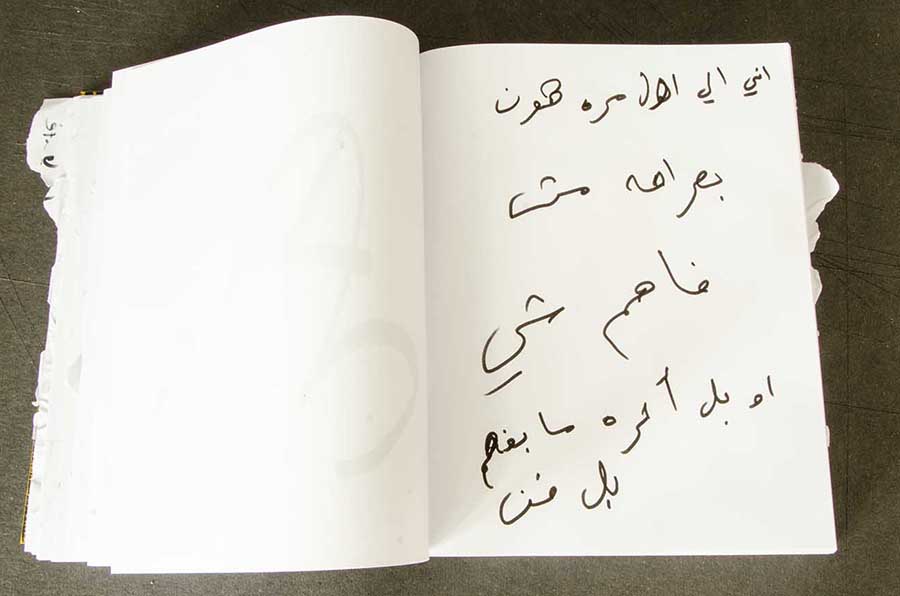 اني الي اول مره هون
بصراحه مش
فاهم شي
او بل أكره ما بفهم
بل فن